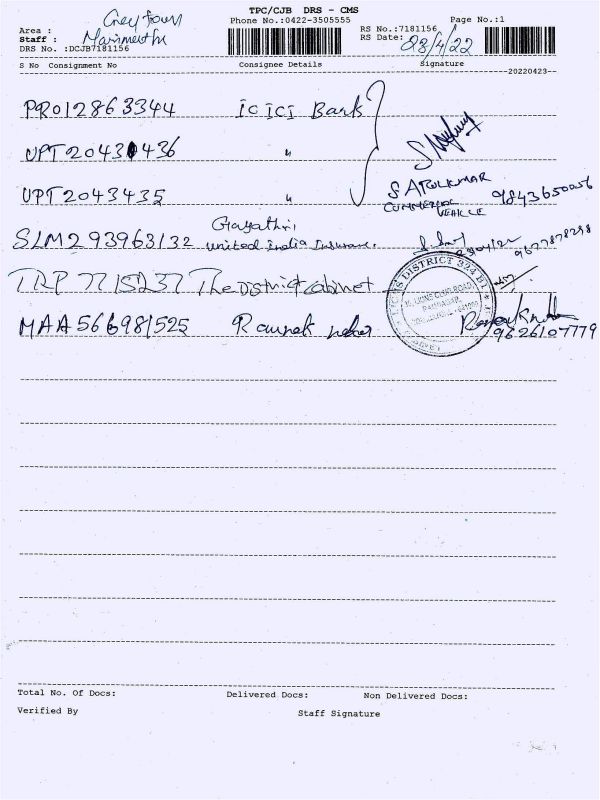 TPC/CJB DRS - CMS
Phone No.:0422-3505555 Page No.:1
Area : Grey town
Staff : Marimuthu
DRS No. :DCJB7181156
RS No.:7181156
RS Date: 23/4/22
S No Consignment No Consignee Details Signature
20220423
PR012863344 ICICI Bank
UPT2043436 "
S ATULKMAR 9843650056
COMMERCIAL VEHICLE
UPT2043435 "
Gayathri,
SLM293963132 United India Insurance. 23/04/22 9677878298
TRP 7715237 The District cabinet
LIONS DISTRICT 324 B1
MAA566981525 Raunak 9626107779
Total No. Of Docs: Delivered Docs: Non Delivered Docs:
Verified By Staff Signature